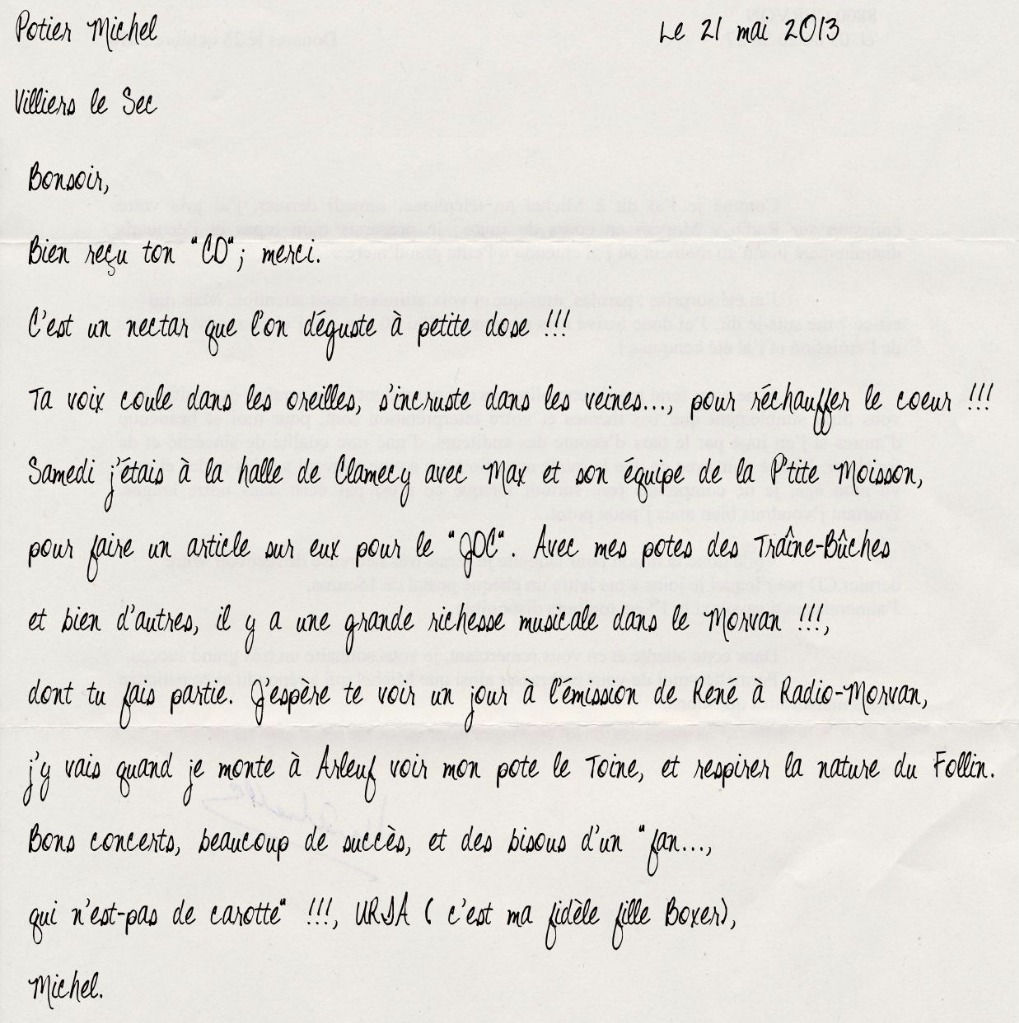 Potier Michel Le 21 mai 2013
Villiers le Sec
Bonsoir,
Bien reçu ton "CD"; merci.
C'est un nectar que l'on déguste à petite dose !!!
Ta voix coule dans les oreilles, s'incruste dans les veines..., pour réchauffer le coeur !!!
Samedi j'étais à la halle de Clamecy avec Max et son équipe de la P'tite Moisson,
pour faire un article sur eux pour le "JDC". Avec mes potes des Traîne-Bûches
et bien d'autres, il y a une grande richesse musicale dans le Morvan !!!,
dont tu fais partie. J'espère te voir un jour à l'émission de René à Radio-Morvan,
j'y vais quand je monte à Arleuf voir mon pote le Toine, et respirer la nature du Follin.
Bons concerts, beaucoup de succès, et des bisous d'un "fan...,
qui n'est-pas de carotte" !!!, URSA ( c'est ma fidèle fille Boxer),
Michel.